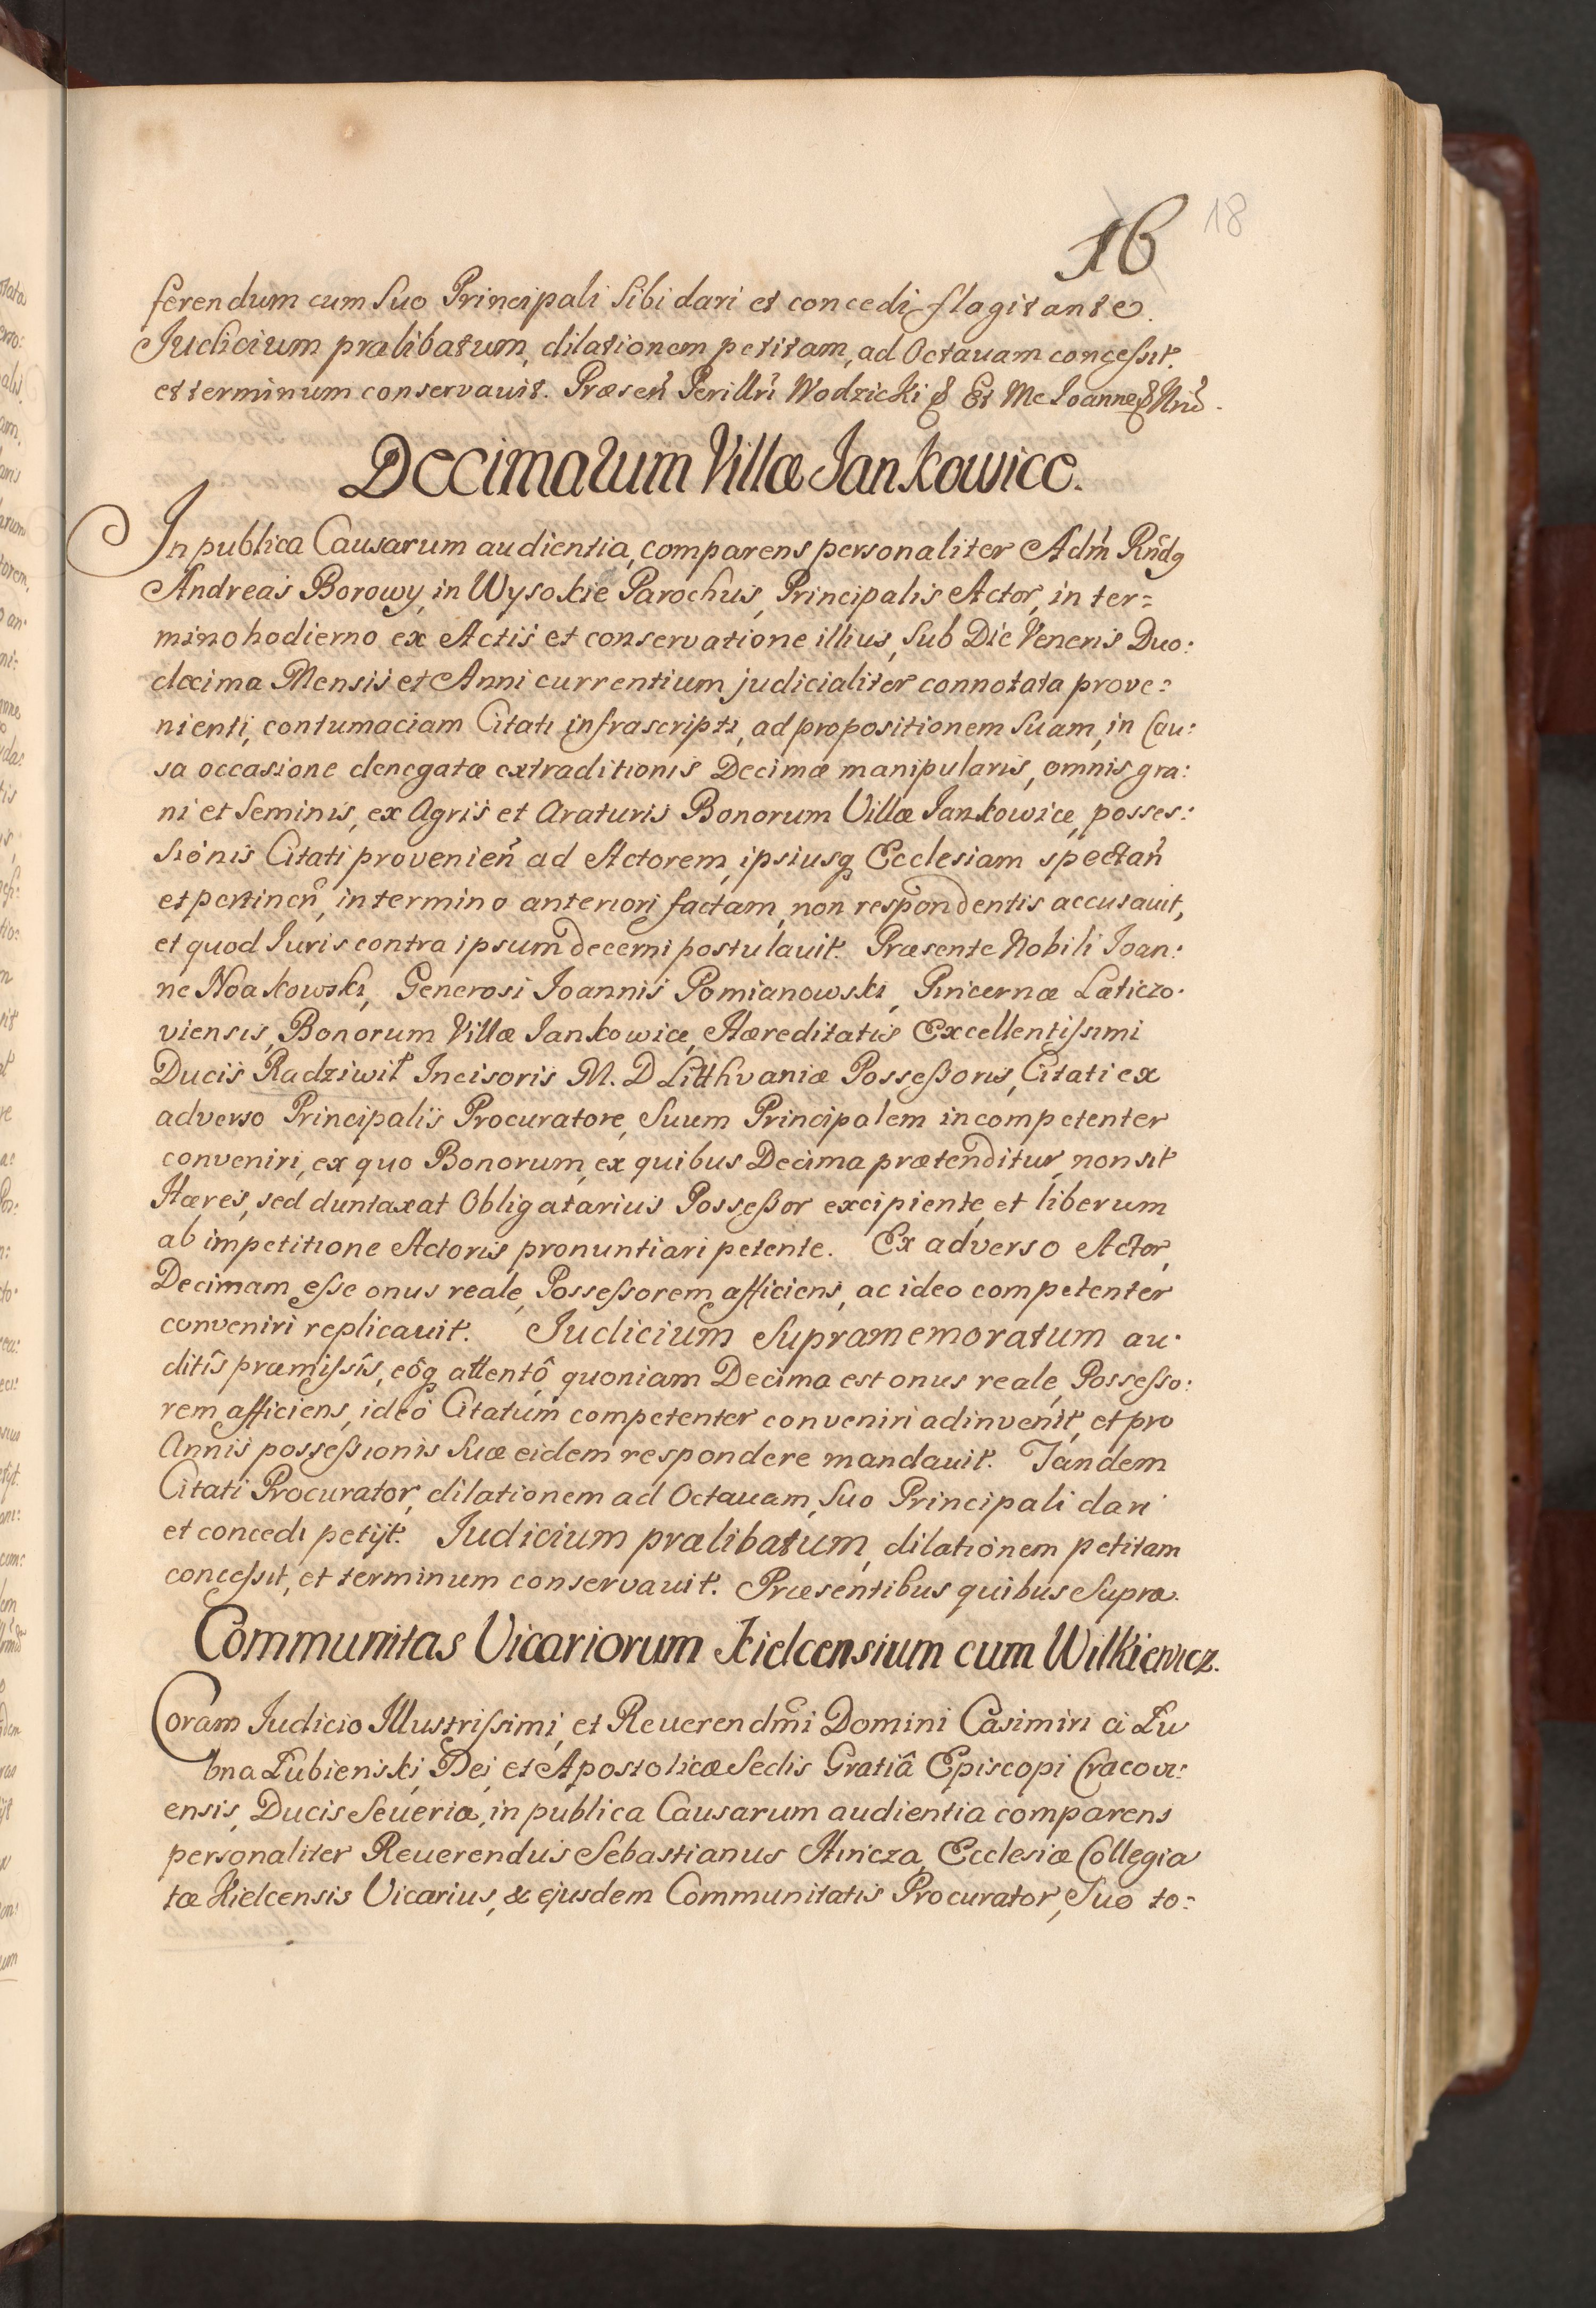 16 18
ferendum cum Suo Principali Sibi dari et concedi flagitante.
Judicium prælibatum, dilationem petitam, ad Octavam concessit.
et terminum conservavit. Præseñ Perillri Wodzicki & Et Me Joanne & Nrio.
Decimarum Villæ Jankowice.
In publica Causarum audientia, comparens personaliter Adm̃ Rñdq
Andreas Borowy, in Wysokie Parochus, Principalis Actor, in ter=
mino hodierno ex Actis et conservatione illius, Sub Die Veneris Duo:
decima Mensis et Anni currentium judicialiter connotata prove:
nienti, contumaciam Citati infrascripti, ad propositionem Suam, in Cau:
sa occasione denegatæ extraditionis Decimæ manipularis, omnis gra:
ni et Seminis, ex Agris et Araturis Bonorum Villæ Jankowice, posses:
sionis Citati provenieñ ad Actorem, ipsiusq Ecclesiam spectañ
et pertineñ, in termino anteriori factam, non respondentis accusavit,
et quod Juris contra ipsum decerni postulavit. Præsente Nobili Joan:
ne Noakowski, Generosi Joannis Pomianowski, Pincernæ Laticzo:
viensis, Bonorum Villæ Jankowice, Hæreditatis Excellentissimi
Ducis Radziwił Incisoris M. D Litthvaniæ Possessoris, Citati ex
adverso Principalis Procuratore, Suum Principalem incompetenter
conveniri, ex quo Bonorum, ex quibus Decima prætenditur, non sit
Hæres, sed duntaxat Obligatarius Possessor excipiente, et liberum
ab impetitione Actoris pronuntiari petente. Ex adverso Actor,
Decimam esse onus reale, Possessorem afficiens, ac ideo competenter
conveniri replicavit. Judicium Supramemoratum au:
ditîs præmissîs, eôq attentô, quoniam Decima est onus reale, Possesso:
rem afficiens, ideo Citatum competenter conveniri adinvenit, et pro
Annis possessionis Suæ eidem respondere mandavit. Tandem
Citati Procurator, dilationem ad Octavam, Suo Principali dari
et concedi petijt. Judicium prælibatum, dilationem petitam
concessit, et terminum conservavit. Præsentibus quibus Supra.
Communitas Vicariorum Kielcensium cum Wilkiewicz.
Coram Judicio Illustrissimi, et Reverendm̃i Domini Casimiri à Łu
bna Łubienski, Dei, et Apostolicæ Sedis Gratiâ Episcopi Cracovi:
ensis, Ducis Severiæ, in publica Causarum audientia comparens
personaliter Reverendus Sebastianus Hincza, Ecclesiæ Collegia
tæ Kielcensis Vicarius, & ejusdem Communitatis Procurator, Suo to: